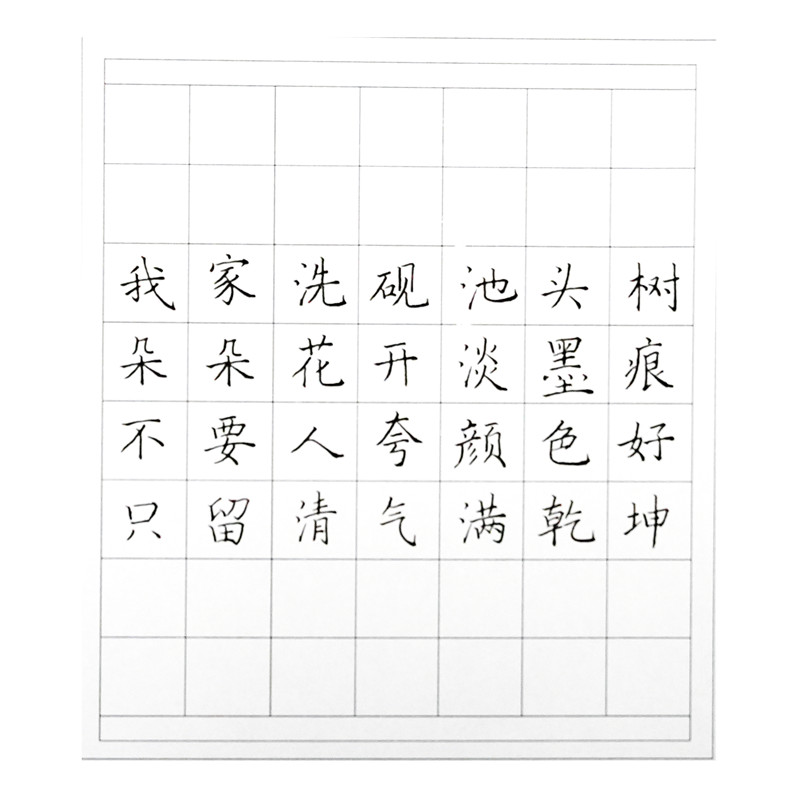 我家洗砚池头树
朵朵花开淡墨痕
不要人夸颜色好
只留清气满乾坤